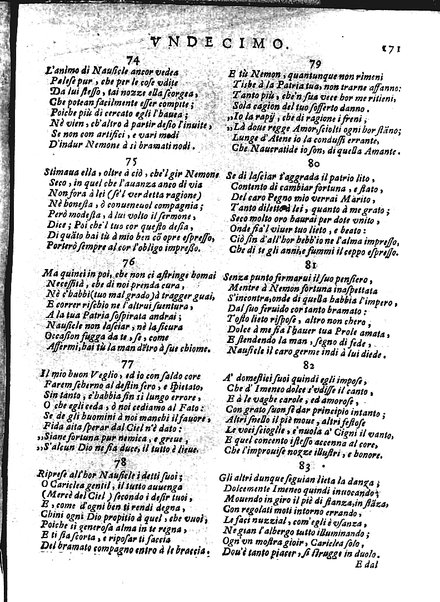 VNDECIMO.
171
74
L'animo di Nausicle ancor vedea
Palese pur, che per le cose vdite
Da lui stesso, tai nozze ella scorgea,
Che potean facilmente esser compite;
Poiche più di cercato egli l'hauea;
Nè vien, ch'altro à partir desio l'inuite,
Se non con artifici, e vari modi
D'indur Nemone à sì bramati nodi.
75
Stimaua ella, oltre à ciò, che'l gir Nemone
Seco, in quel che l'auanza anco di via
Non fora à lei (se'l ver detta ragione)
Nè honesta, ò conueneuol compagnia;
Però modesta, à lui volto il sermone,
Dice; Poi che'l tuo cor questo desia,
Di quãto hai tù à mio ben cõ opre espresso,
Porterò sempre al cor l'obligo impresso.
76
Ma quinci in poi, che non ci astringe homai
Necessità, che di noi prenda cura,
Nè c'habbi (tuo mal grado) à tragger guai,
E correr rischio ne l'altrui suentura,
A la tua Patria sospirata andrai;
Nausicle non lasciar, nè la sicura
Occasion fugga da te, se, come
Affermi, hai tù la man dẽtro à sue chiome.
77
Il mio buon Veglio, ed io con saldo core
Farem scherno al destin fero, e spietato,
Sin tanto, c'habbia fin il lungo errore,
O che egli ceda, ò noi cediamo al Fato:
Se de gli huomini à noi manchi il fauore,
Fida aita sperar dal Ciel n'è dato:
„Siane fortuna pur nemica, e greue,
„S'alcun Dio ne fia duce, il tutto è lieue.
78
Riprese all'hor Nausicle i detti suoi;
O Cariclea gentil, il tutto auuenga
(Mercè del Ciel) secondo i desir tuoi,
E, come d'ogni ben ti rendi degna,
Chini ogni Dio propitio à quel, che vuoi;
Poiche sì generosa alma in te regna,
E ti sia scorta, e riposar ti faccia
Del bramato compagno entro à le braccia.
79
E tù Nemon, quantunque non rimeni
Tisbe à la Patria tua, non trarne affanno:
Tanto più, ch'ẽn sua vece hor me ritieni,
Sola cagion del tuo sofferto danno.
„Io la rapij, che di ragione i freni;
„Là doue regge Amor, sciolti ogni hor stãno;
Lunge d'Atene io la condussi errante,
Che Naucratide io son, di quella Amante.
80
Se di lasciar t'aggrada il patrio lito,
Contento di cambiar fortuna, e stato,
Del caro Pegno mio verrai Marito,
Tanto diletto à lei, quanto à me grato;
Seco molto oro haurai per dote vnito,
Onde fia'l viuer tuo lieto, e beato:
Ciò sin d'all'hor hebb'io ne l'alma impresso,
Che di te gli anni, e fummi il ceppo espresso.
81
Senza punto fermarui il suo pensiero,
Mentre à Nemon fortuna inaspettata
S'incontra, onde di quella habbia l'impero,
Dal suo feruido cor tanto bramato:
Tosto lieto rispose, altro non chero,
Dolce à me fia l'hauer tua Prole amata,
E stendendo la man, segno di fede,
Nausicle il caro germe indi à lui diede.
82
A' domestici suoi quindi egli impose,
Che d'Imeneo dolce s'vdisse il canto,
E à le vaghe carole, ed amorose,
Con grato suon se dar principio intanto;
Altri snello il piè moue, altri festose
Le voci scioglie, e ruola à' Cigni il vanto,
E quel concento istesso accenna al core,
Che l'improuise nozze illustri, e honore.
83
Gli altri dunque seguian lieta la danza;
Dolcemente Imeneo quindi inuocando;
Mouendo in giro il piè di stanza, in stãza,
Con regolati moti intorno errando.
Le faci nuzzial, com'egli è vsanza,
Ne gian l'albergo tutto illuminando;
Ogn'vn mostra gioir, Cariclea solo,
Dou'è tanto piacer, si strugge in duolo.
E dal